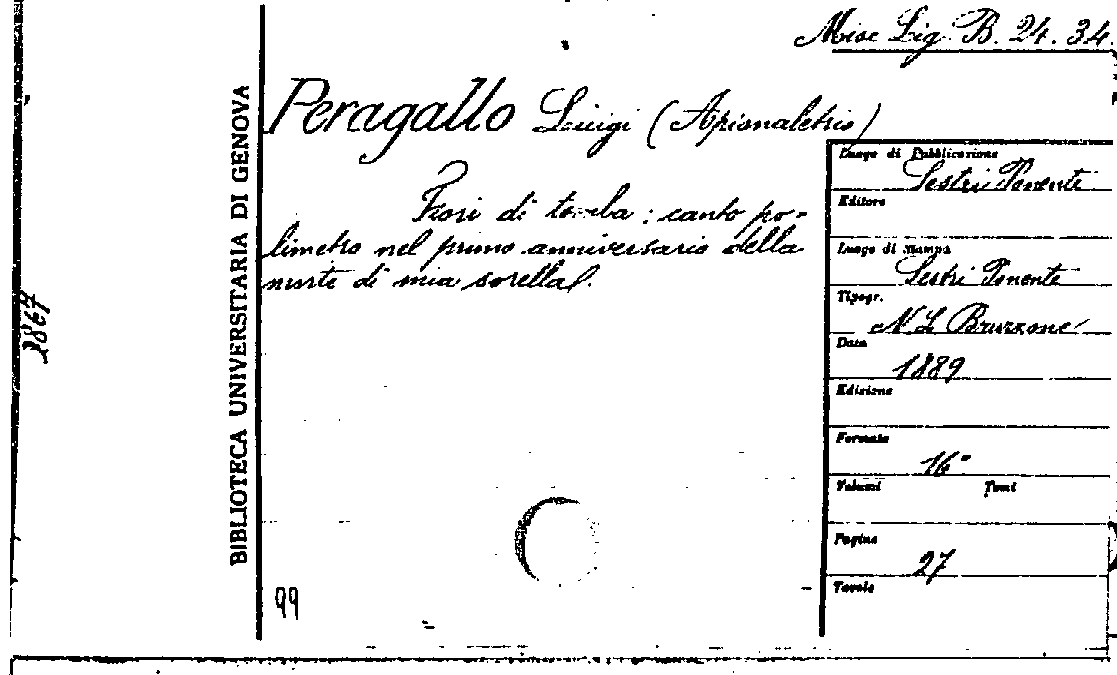 Misc Lig. B. 24. 34.
Peragallo Luigi (Apionaletrio)
Fiori di tomba : canto po-
limetro nel primo anniversario della
morte di mia sorella.
BIBLIOTECA UNIVERSITARIA DI GENOVA
2867
99
Luogo di Pubblicazione
Sestri Ponente
Editore
Luogo di Stampa
Sestri Ponente
Tipogr.
N. L. Bruzzone
Data
1889
Edizione
Formato
16°
Volumi Tomi
Pagine
27
Tavole